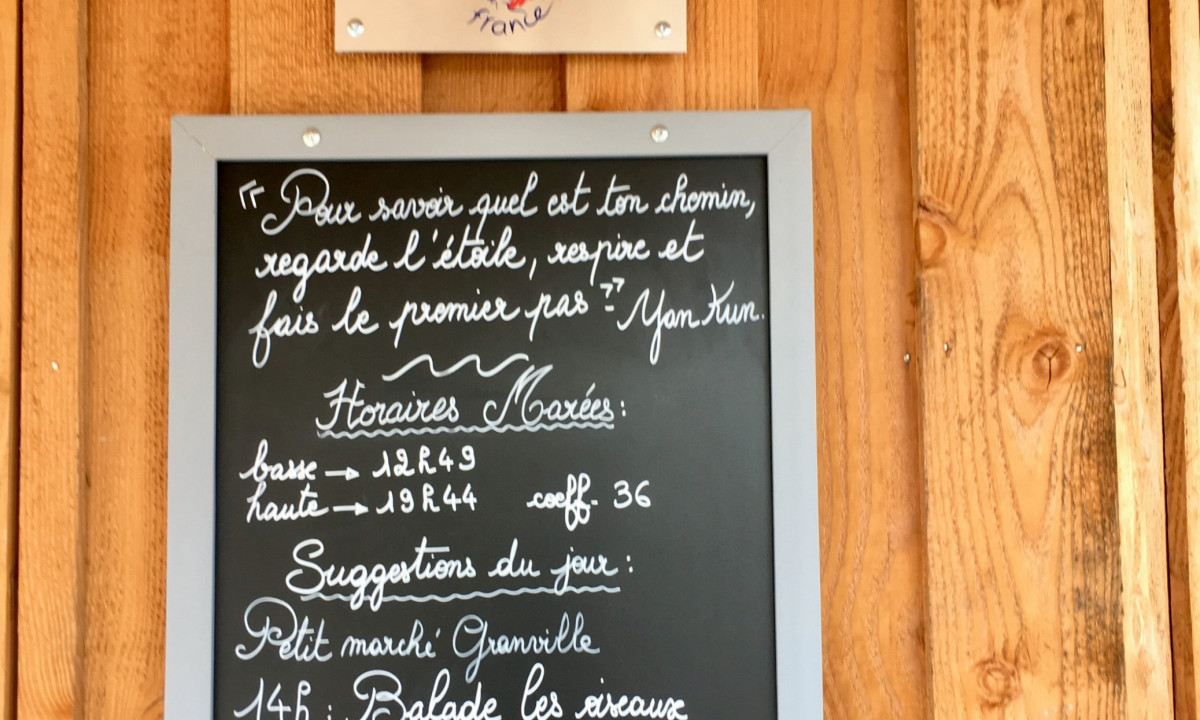 france
« Pour savoir quel est ton chemin,
regarde l'étoile, respire et
fais le premier pas » - Yan Kun.
Horaires Marées :
basse → 12h49
haute → 19h44 coeff. 36
Suggestions du jour :
Petit marché Granville
14h : Balade les oiseaux